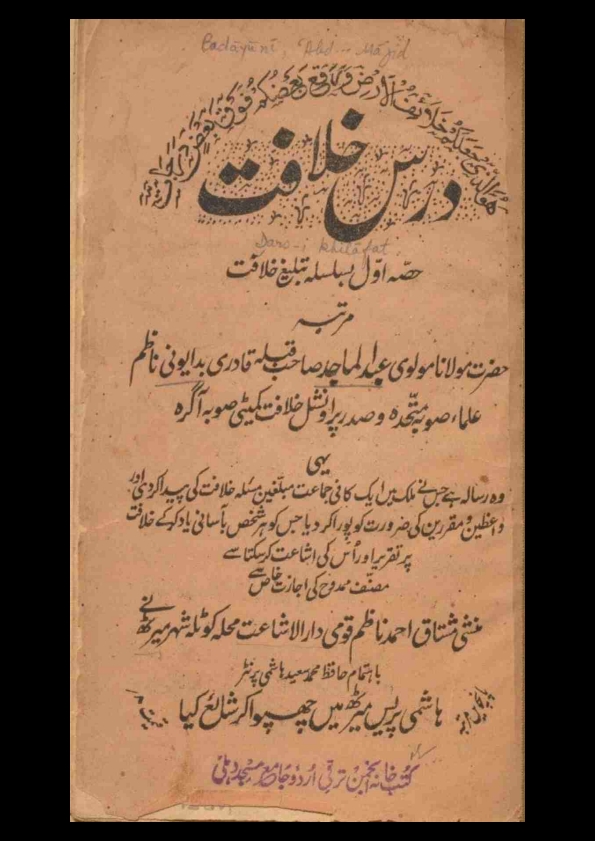 Badāyūnī, ʻAbd... Mājid
هو الذی جعلکم خلائف الارض ورفع بعضکم فوق بعض درجات
درس خلافت
Dars-i khilāfat.
حصّہ اوّل بسلسلہ تبلیغ خلافت
مرتبہ
حضرت مولانا مولوی عبدالماجد صاحب قبلہ قادری بدایونی ناظم
علماء صوبہ متّحدہ و صدر پراونشل خلافت کمیٹی صوبہ آگرہ
یہی
وہ رسالہ ہے جس نے ملک میں ایک کافی جماعت مبلّغین مسئلہ خلافت کی پیدا کردی اور
واعظین و مقررین کی ضرورت کو پورا کر دیا جس کو ہر شخص بآسانی یاد کرکے خلافت
پر تقریر اور اُس کی اشاعت کرسکتا ہے
مصنّف ممدوح کی اجازت خاص سے
منشی مشتاق احمد ناظم قومی دارالاشاعت محلہ کوٹلہ شہر میرٹھ نے
باہتمام حافظ محمد سعید ہاشمی پرنٹر
ہاشمی پریس میرٹھ میں چھپوا کر شائع کیا
قیمت
کتب خانہ انجمن ترقی اردو جامع مسجد دہلی